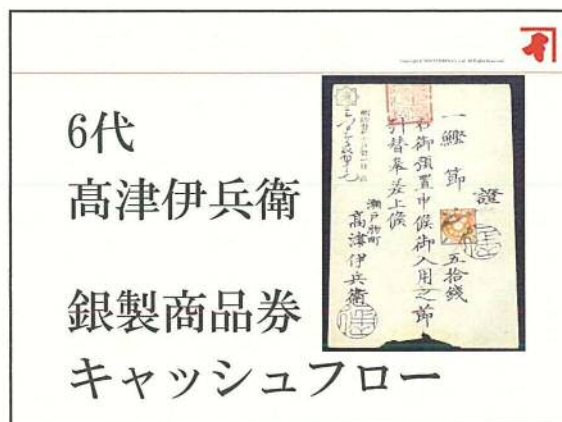 6代
高津伊兵衛
銀製商品券
キャッシュフロー
證
一鰹節 五拾錢
右御預置申候御入用之節
引替奉差上候
瀬戸物町
高津伊兵衛